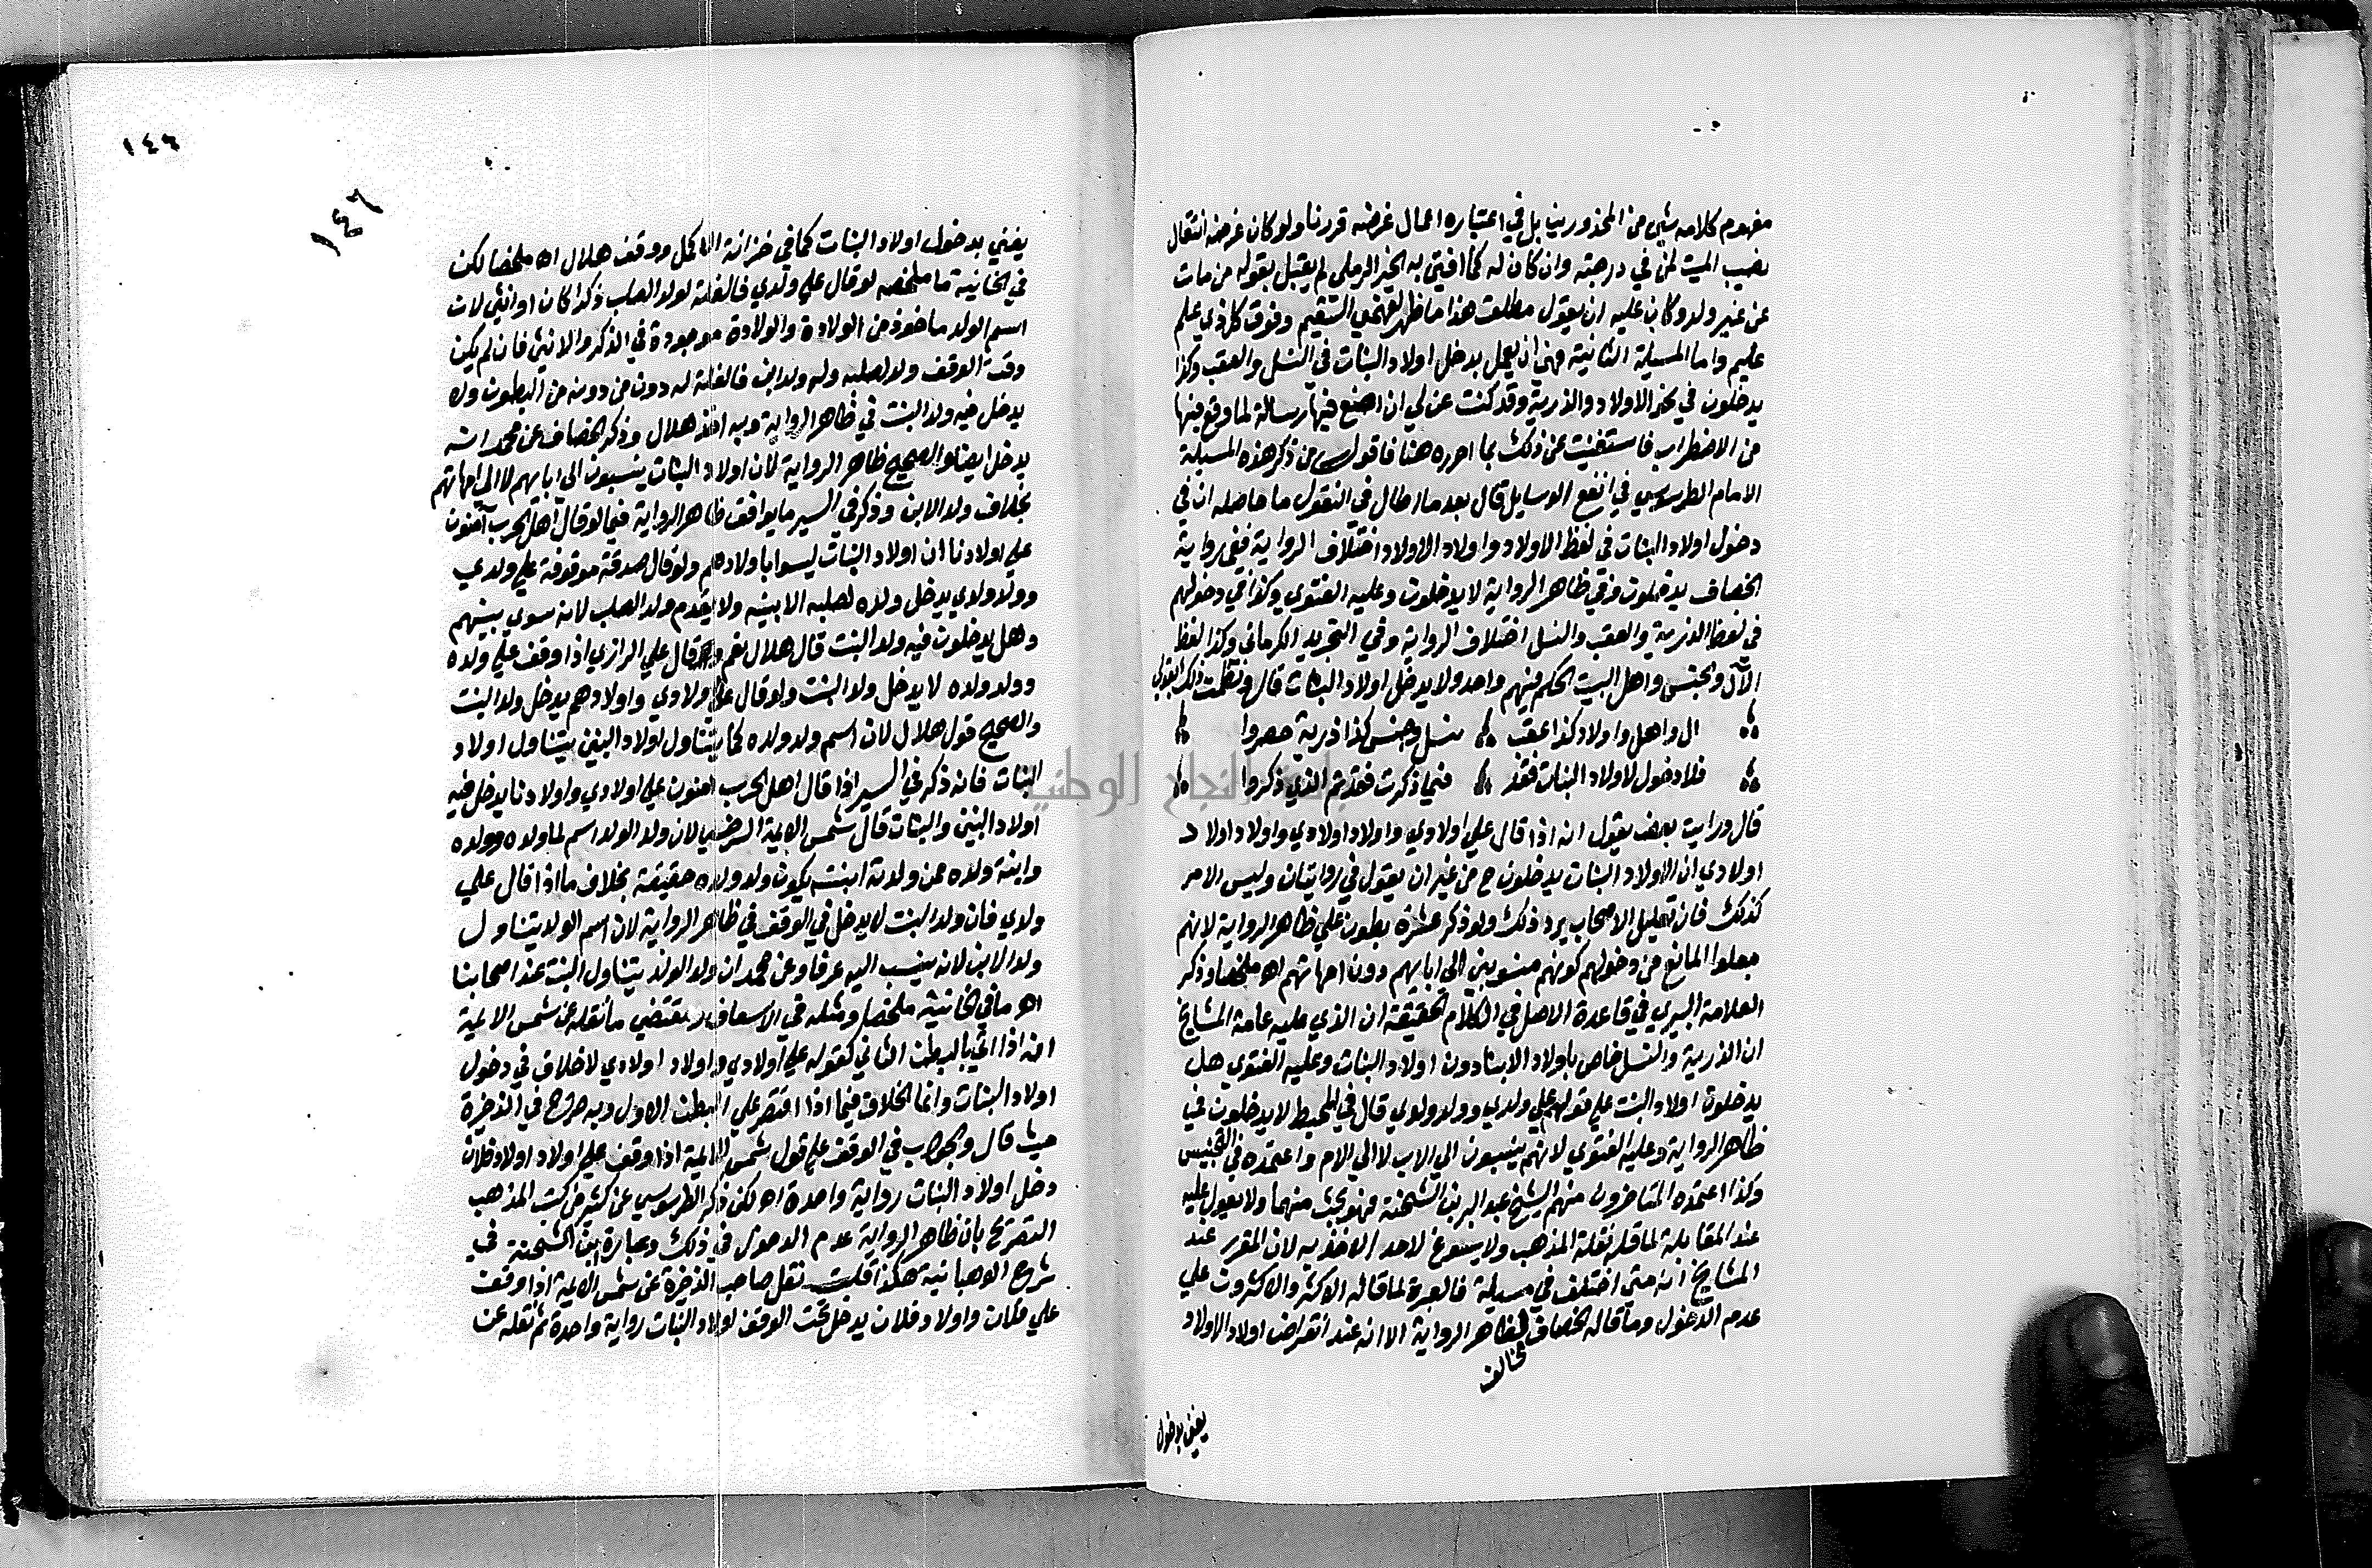 مفهوم كلامه شي من المحذورين بل في اعتباره اعمال غرضه قررنا ولو كان غرضه انتقال
نصيب الميت لمن في درجته وان كان له كما افتى به الخير الرملى لم يقبل بقوله من مات
عن غير ولد وكان عليه ان يقول مطلقا هذا ما ظهر لفهمي السقيم وفوق كل ذي علم
عليم واما المسيلة الثانية فهي ان يدخل اولاد البنات في النسل والعقب وكذا
يدخلون في نحو الاولاد والذرية وقد كنت عن لي ان اصنع فيها رسالة لما وقع فيها
من الاضطراب فاستغنيت عن ذلك بما احرره هنا فاقول من ذكر هذه المسيلة
الامام الطرسوسي في انفع الوسايل قال بعد ما اطال في النقول ما حاصله ان في
دخول اولاد البنات في لفظ الاولاد واولاد الاولاد اختلاف الرواية ففي رواية
الخصاف يدخلون وفي ظاهر الرواية لا يدخلون وعليه الفتوى وكذا في دخولهم
في لفظ الذرية والعقب والنسل اختلاف الرواية وفي التجريد الكرماني وكذا لفظ
الآل والجنس واهل البيت الحكم فيهم واحد ولا يدخل اولاد البنات قال ونظمت ذلك بقولي
ال واهل واولاد كذا عقب نسل وجنس كذا ذرية حصروا
فلا دخول لاولاد البنات فقد فيما ذكرت فقد تم الذي ذكروا
قال ورايت بعض يقول انه اذا قال علي اولادي واولاد اولادي واولاد اولاد
اولادي ان الاولاد البنات يدخلون ح من غير ان يقول في روايتان وليس الامر
كذلك فان تعليل الاصحاب يرد ذلك ولو ذكر عشرة بطون علي ظاهر الرواية لانهم
جعلوا المانع من دخولهم كونهم منسوبين الى ابايهم دون امهاتهم اه ملخصا وذكر
العلامة البيري في قاعدة الاصل في الكلام الحقيقة ان الذي عليه عامة المشايخ
ان الذرية والنسل خاص باولاد الابنا دون اولاد البنات وعليه الفتوي هل
يدخلون اولاد البنت علي قولهم علي ولدي وولد ولدي قال في المحيط لا يدخلون في
ظاهر الرواية وعليه الفتوي لانهم ينسبون الي الاب لا الي الام واعتمده في التجنيس
وكذا اعتمده المتاخرون منهم الشيخ عبد البر بن الشحنة فهو بحث منهما ولا يعول عليه
عند المقابلة لما قاله نقلة المذهب ولا يسوغ لاحد الاخذ به لان المقرر عند
المشايخ انه متى اختلف في مسيلة فالعبرة لما قاله الاكثر والاكثرون علي
عدم الدخول وما قاله الخصاف لظاهر الرواية الا انه عند انقراض اولاد الاولاد
مخالف
يفتي بدخول
١٤٦
١٤٦
يفتي بدخول اولاد البنات كما في خزانة الاكمل ووقف هلال اه ملخصا لكن
في الخانية ما ملخصه لو قال علي ولدي فالغلة لولد الصلب ذكرا كان او انثى لان
اسم الولد ماخوذ من الولادة والولادة موجودة في الذكر والانثى فان لم يكن
وقت الوقف ولد لصلبه وله ولد ابن فالغلة له دون من دونه من البطون ولا
يدخل فيه ولد البنت في ظاهر الرواية وبه اخذ هلال وذكر الخصاف عن محمد انه
يدخل ايضا والصحيح ظاهر الرواية لان اولاد البنات ينسبون الى ابايهم لا الى امهاتهم
بخلاف ولد الابن وذكر في السير ما يوافق ظاهر الرواية فيما لو قال اهل الحرب آمنون
علي اولادنا ان اولاد البنات ليسوا باولادهم ولو قال صدقة موقوفة علي ولدي
وولد ولدي يدخل ولده لصلبه الابنيه ولا يقدم ولد الصلب لانه سوي بينهم
وهل يدخلون فيه ولد البنت قال هلال نعم وقال علي الرازي اذا وقف علي ولده
وولد ولده لا يدخل ولد البنت ولو قال علي اولادي واولادهم يدخل ولد البنت
والصحيح قول هلال لان اسم ولد ولده كما يتناول اولاد البنين يتناول اولاد
البنات فانه ذكر في السير اذا قال اهل الحرب امنون علي اولادي واولادنا يدخل فيه
اولاد البنين والبنات قال شمس الايمة السرخسي لان ولد الولد اسم لما ولده وولده
وابنة ولده فمن ولدته ابنته يكون ولد ولده حقيقة بخلاف ما اذا قال علي
ولدي فان ولد البنت لا يدخل في الوقف في ظاهر الرواية لان اسم الولد يتناول
ولد الابن لانه ينسب اليه عرفا وعن محمد ان ولد الولد يتناول البنت عند اصحابنا
اه ما في الخانية ملخصا ومثله في الاسعاف ومقتضي ما نقله عن شمس الايمة
انه اذا اتي بالبطن الثاني كقوله علي اولادي واولاد اولادي لا خلاف في دخول
اولاد البنات وانما الخلاف فيما اذا اقتصر علي البطن الاول وبه صرح في الذخيرة
حيث قال والجواب في الوقف علي قول شمس الايمة اذا وقف علي اولاد اولاد فلان
دخل اولاد البنات رواية واحدة اه لكن ذكر الطرسوسي عن كثير من كتب المذهب
التصريح بان ظاهر الرواية عدم الدخول في ذلك وعبارة ابن الشحنة في
شرح الوهبانية هكذا قلت نقل صاحب الذخيرة عن شمس الايمة اذا وقف
علي فلان واولاد فلان يدخل تحت الوقف اولاد البنات رواية واحدة ثم نقله عن
النجاح الوطنية